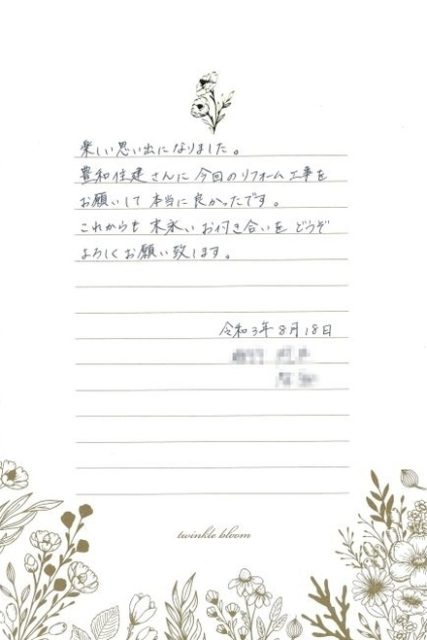 楽しい思い出になりました。
豊和住建さんに今回のリフォーム工事を
お願いして本当に良かったです。
これからも末永いお付き合いをどうぞ
よろしくお願い致します。
令和3年8月18日
twinkle bloom